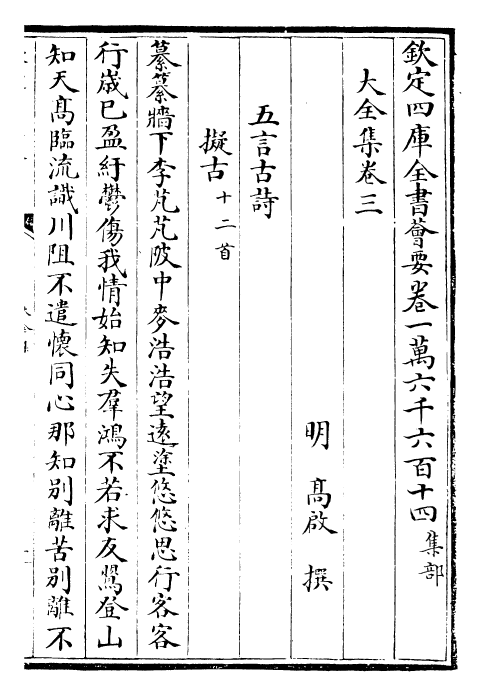 欽定四庫全書薈要卷一萬六千六百十四 集部
大全集卷三
明 髙啟 撰
五言古詩
擬古十二首
纂纂牆下李芃芃陂中麥浩浩望逺塗悠悠思行客客
行嵗已盈紆鬱傷我情始知失羣鴻不若求友鶯登山
知天髙臨流識川阻不遣懷同心那知別離苦別離不